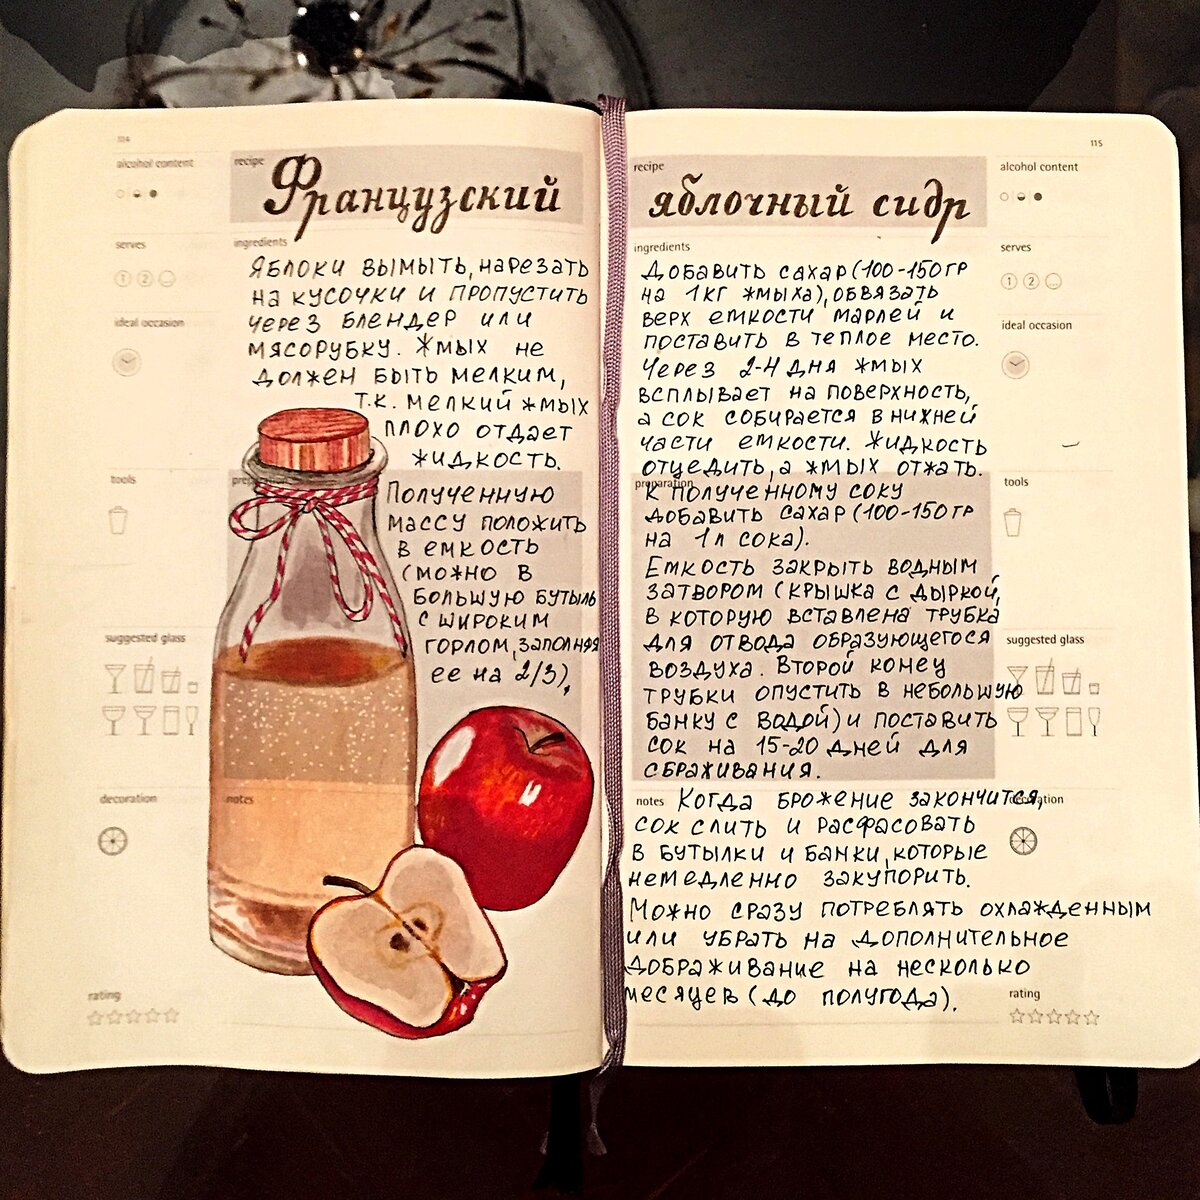 114
alcohol content
recipe
Французский
serves
ingredients
1 2 ...
ideal occasion
Яблоки вымыть, нарезать
на кусочки и пропустить
через блендер или
мясорубку. Жмых не
должен быть мелким,
т.к. мелкий жмых
плохо отдает
жидкость.
tools
preparation
Полученную
массу положить
в емкость
(можно в
большую бутыль
с широким
горлом, заполняя
ее на 2/3),
suggested glass
decoration
notes
rating
115
recipe
alcohol content
яблочный сидр
ingredients
serves
1 2 ...
ideal occasion
Добавить сахар (100-150гр
на 1кг жмыха), обвязать
верх емкости марлей и
поставить в теплое место.
Через 2-4 дня жмых
всплывает на поверхность,
а сок собирается в нижней
части емкости. Жидкость
отцедить, а жмых отжать.
preparation
tools
К полученному соку
добавить сахар (100-150гр
на 1л сока).
Емкость закрыть водным
затвором (крышка с дыркой,
в которую вставлена трубка
для отвода образующегося
воздуха. Второй конец
трубки опустить в небольшую
банку с водой) и поставить
сок на 15-20 дней для
сбраживания.
suggested glass
notes
decoration
Когда брожение закончится,
сок слить и расфасовать
в бутылки и банки, которые
немедленно закупорить.
Можно сразу потреблять охлажденным
или убрать на дополнительное
дображивание на несколько
месяцев (до полугода).
rating